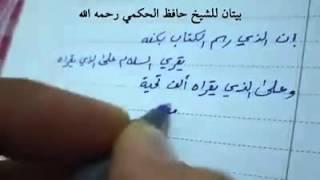 بيتان للشيخ حافظ الحكمي رحمه الله
إن الذي رسم الكتاب بكفه
يقرئ السلام على الذي يقراه
وعلى الذي يقراه ألف تحية